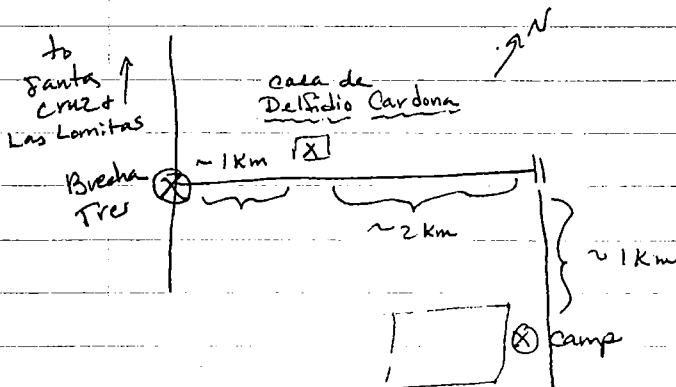 N
to
Santa
Cruz &
Las Lomitas
casa de
Delfidio Cardona
X
~ 1 Km
Brecha
Tres
X
~ 2 Km
~ 1 Km
X camp